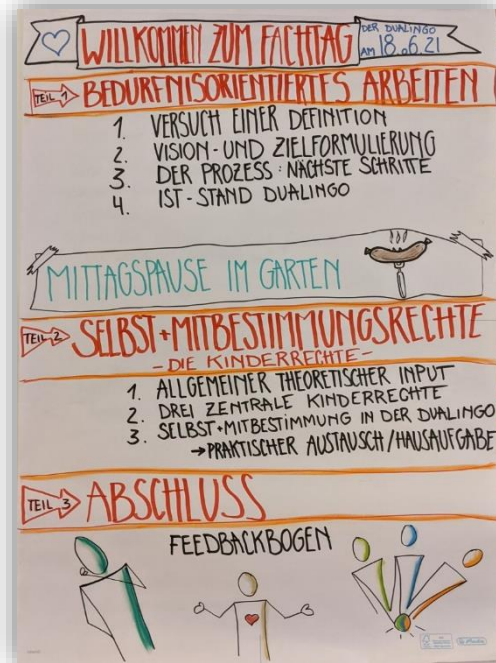 WILLKOMMEN ZUM FACHTAG
DER DUALINGO
AM 18.6.21
TEIL 1 BEDÜRFNISORIENTIERTES ARBEITEN
1. VERSUCH EINER DEFINITION
2. VISION- UND ZIELFORMULIERUNG
3. DER PROZESS: NÄCHSTE SCHRITTE
4. IST-STAND DUALINGO
MITTAGSPAUSE IM GARTEN
TEIL 2 SELBST+MITBESTIMMUNGSRECHTE
- DIE KINDERRECHTE -
1. ALLGEMEINER THEORETISCHER INPUT
2. DREI ZENTRALE KINDERRECHTE
3. SELBST+MITBESTIMMUNG IN DER DUALINGO
→ PRAKTISCHER AUSTAUSCH/HAUSAUFGABE
TEIL 3 ABSCHLUSS
FEEDBACKBOGEN